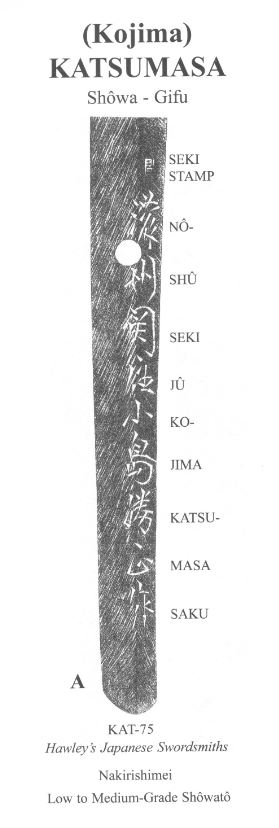 (Kojima)
KATSUMASA
Shôwa - Gifu
濃州関住小島勝正作
SEKI
STAMP
NÔ-
SHÛ
SEKI
JÛ
KO-
JIMA
KATSU-
MASA
SAKU
A
KAT-75
Hawley's Japanese Swordsmiths
Nakirishimei
Low to Medium-Grade Shôwatô